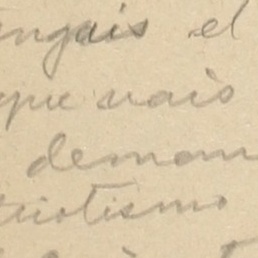 engais el
que vais
deman
triotismo